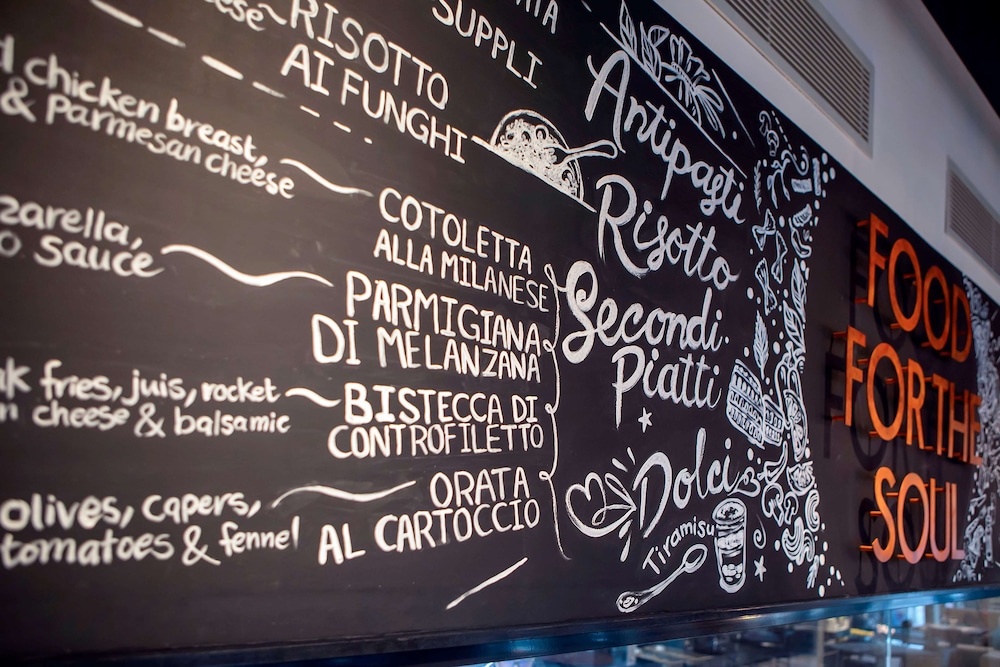 cheese
RISOTTO
AI FUNGHI
SUPPLI
chicken breast,
& Parmesan cheese
COTOLETTA
ALLA MILANESE
sauce
PARMIGIANA
DI MELANZANA
fries, juis, rocket
cheese & balsamic
BISTECCA DI
CONTROFILETTO
olives, capers,
tomatoes & fennel
ORATA
AL CARTOCCIO
Antipasti
Risotto
Secondi
Piatti
Dolci
Tiramisu
FOOD
FOR THE
SOUL